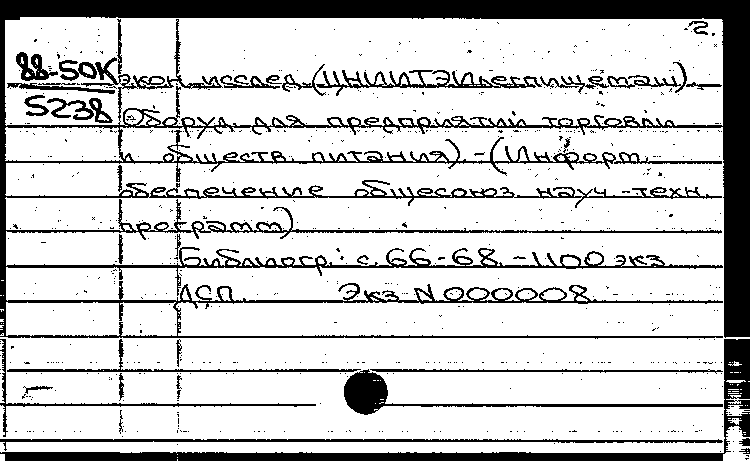 2.
88-50К экон. исслед. (ЦНИИТЭИлегпищемаш)
5238 Оборуд. для предприятий торговли
и обществ. питания). - (Информ.
обеспечение общесоюз. науч.-техн.
программ).
Библиогр.: с. 66-68. - 1100 экз.
ДСП. Экз. N 000008.